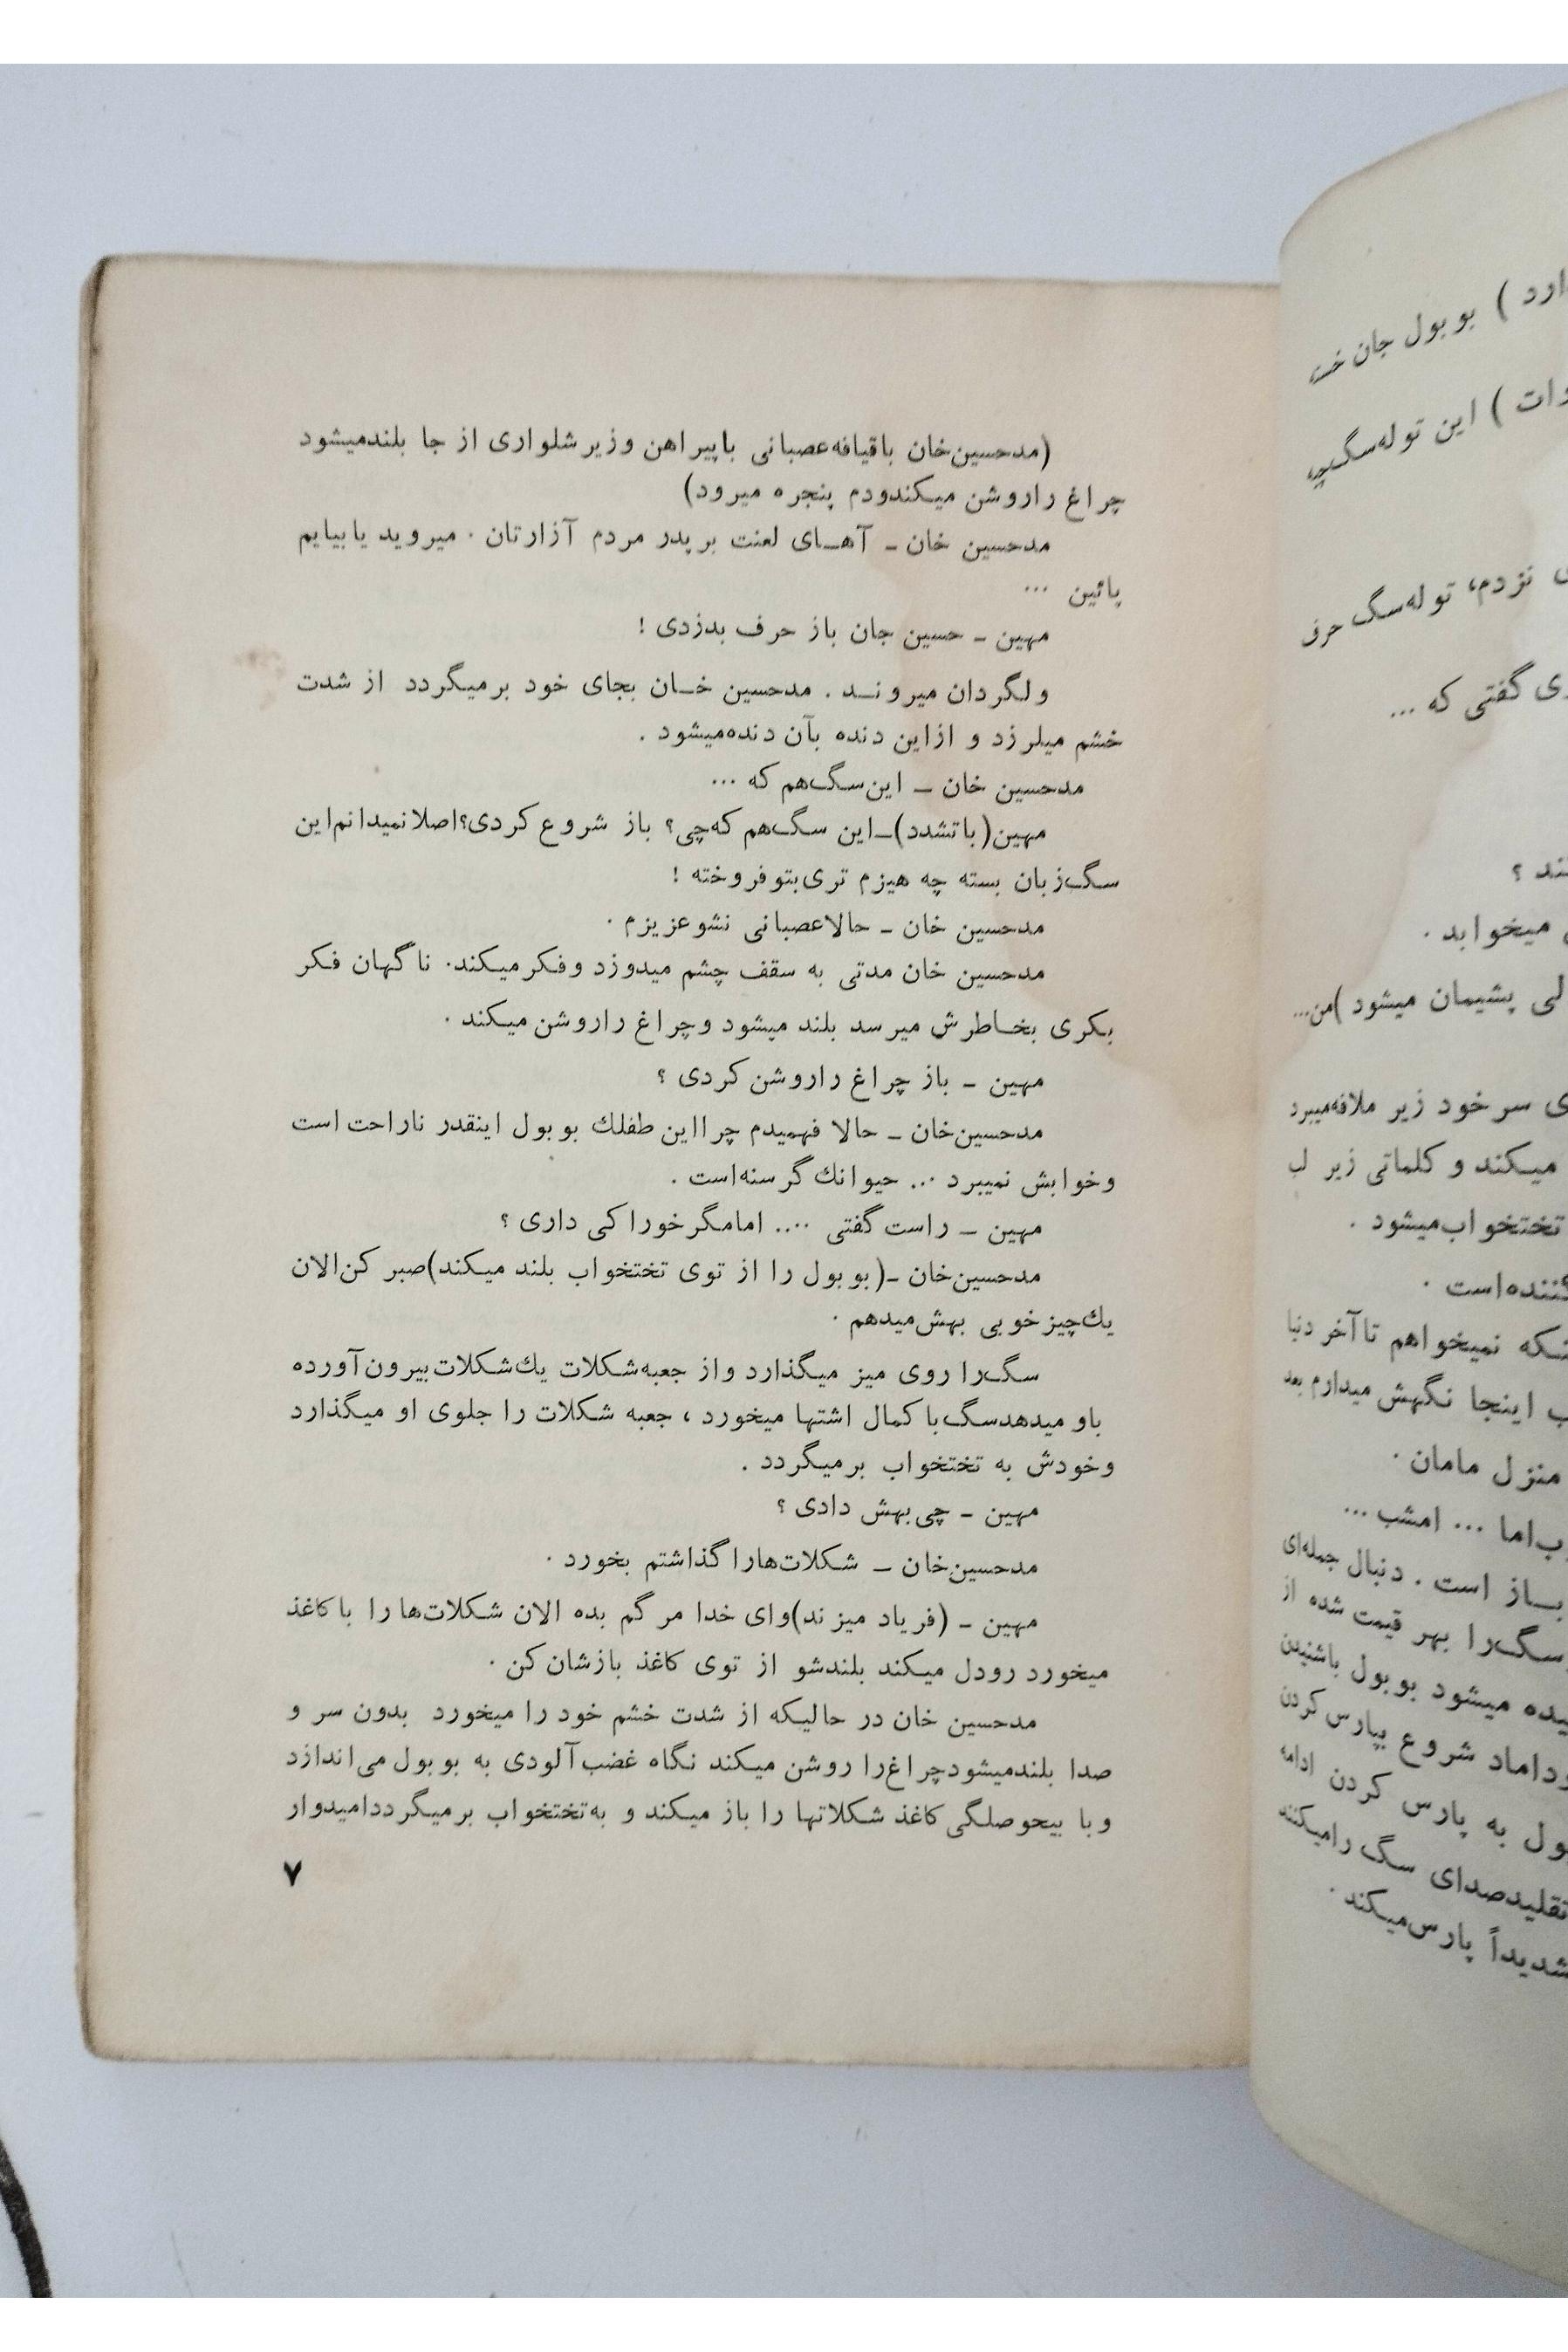 (مدحسین‌خان باقیافه‌عصبانی باپیراهن وزیرشلواری از جا بلندمیشود
چراغ راروشن میکندودم پنجره میرود)
مدحسین خان ـ آهـای لعنت برپدر مردم آزارتان . میروید یابیایم
پائین ...
مهین ـ حسین جان باز حرف بدزدی !
ولگردان میرونـد . مدحسین خـان بجای خود برمیگردد از شدت
خشم میلرزد و ازاین دنده بآن دنده‌میشود .
مدحسین خان ـ این‌سگ‌هم که ...
مهین(باتشدد)ـ‌این سگ‌هم که‌چی؟ باز شروع کردی؟اصلانمیدانم‌این
سگ‌زبان بسته چه هیزم تری‌بتوفروخته !
مدحسین خان ـ حالاعصبانی نشوعزیزم .
مدحسین خان مدتی به سقف چشم میدوزد وفکرمیکند. ناگهان فکر
بکری بخـاطرش میرسد بلند میشود وچراغ راروشن میکند .
مهین ـ باز چراغ راروشن کردی ؟
مدحسین‌خان ـ حالا فهمیدم چرااین طفلك بوبول اینقدر ناراحت است
وخوابش نمیبرد ... حیوانك گرسنه‌است .
مهین ـ راست گفتی .... امامگرخوراکی داری ؟
مدحسین‌خان ـ(بوبول را از توی تختخواب بلند میکند)صبر کن‌الان
یك‌چیزخوبی بهش‌میدهم .
سگ‌را روی میز میگذارد واز جعبه‌شکلات یك‌شکلات‌بیرون‌آورده
باو میدهدسگ‌باکمال اشتها میخورد ، جعبه شکلات را جلوی او میگذارد
وخودش به تختخواب برمیگردد .
مهین ـ چی‌بهش دادی ؟
مدحسین‌خان ـ شکلات‌هاراگذاشتم بخورد .
مهین ـ (فریاد میزند)وای خدا مرگم بده الان شکلات‌هارا باکاغذ
میخورد رودل میکند بلندشو از توی کاغذ بازشان‌کن .
مدحسین خان در حالیکه از شدت خشم خود را میخورد بدون سر و
صدا بلندمیشودچراغ‌را روشن میکند نگاه غضب‌آلودی به بوبول می‌اندازد
وبا بیحوصلگی‌کاغذ شکلاتها را باز میکند و به‌تختخواب برمیگردد‌امیدوار
۷
ارد ) بوبول جان
وات ) این توله‌سگ
نزدم، توله‌سگ حرف
گفتی که ...
ند ؟
میخوابد .
پشیمان میشود )من...
سرخود زیر ملافه‌میبرد
میکند و کلماتی زیر لب
تختخواب‌میشود .
کننده‌است .
نمیخواهم تاآخر دنیا
اینجا نگهش میدارم بعد
منزل مامان .
اما ... امشب ...
بـاز است . دنبال جمله‌ای
سگ‌را بهر قیمت شده از
میشود بوبول باشنیدن
شروع بپارس‌کردن
به پارس کردن ادامه
تقلیدصدای سگ رامیکند
شدیداً پارس‌میکند .